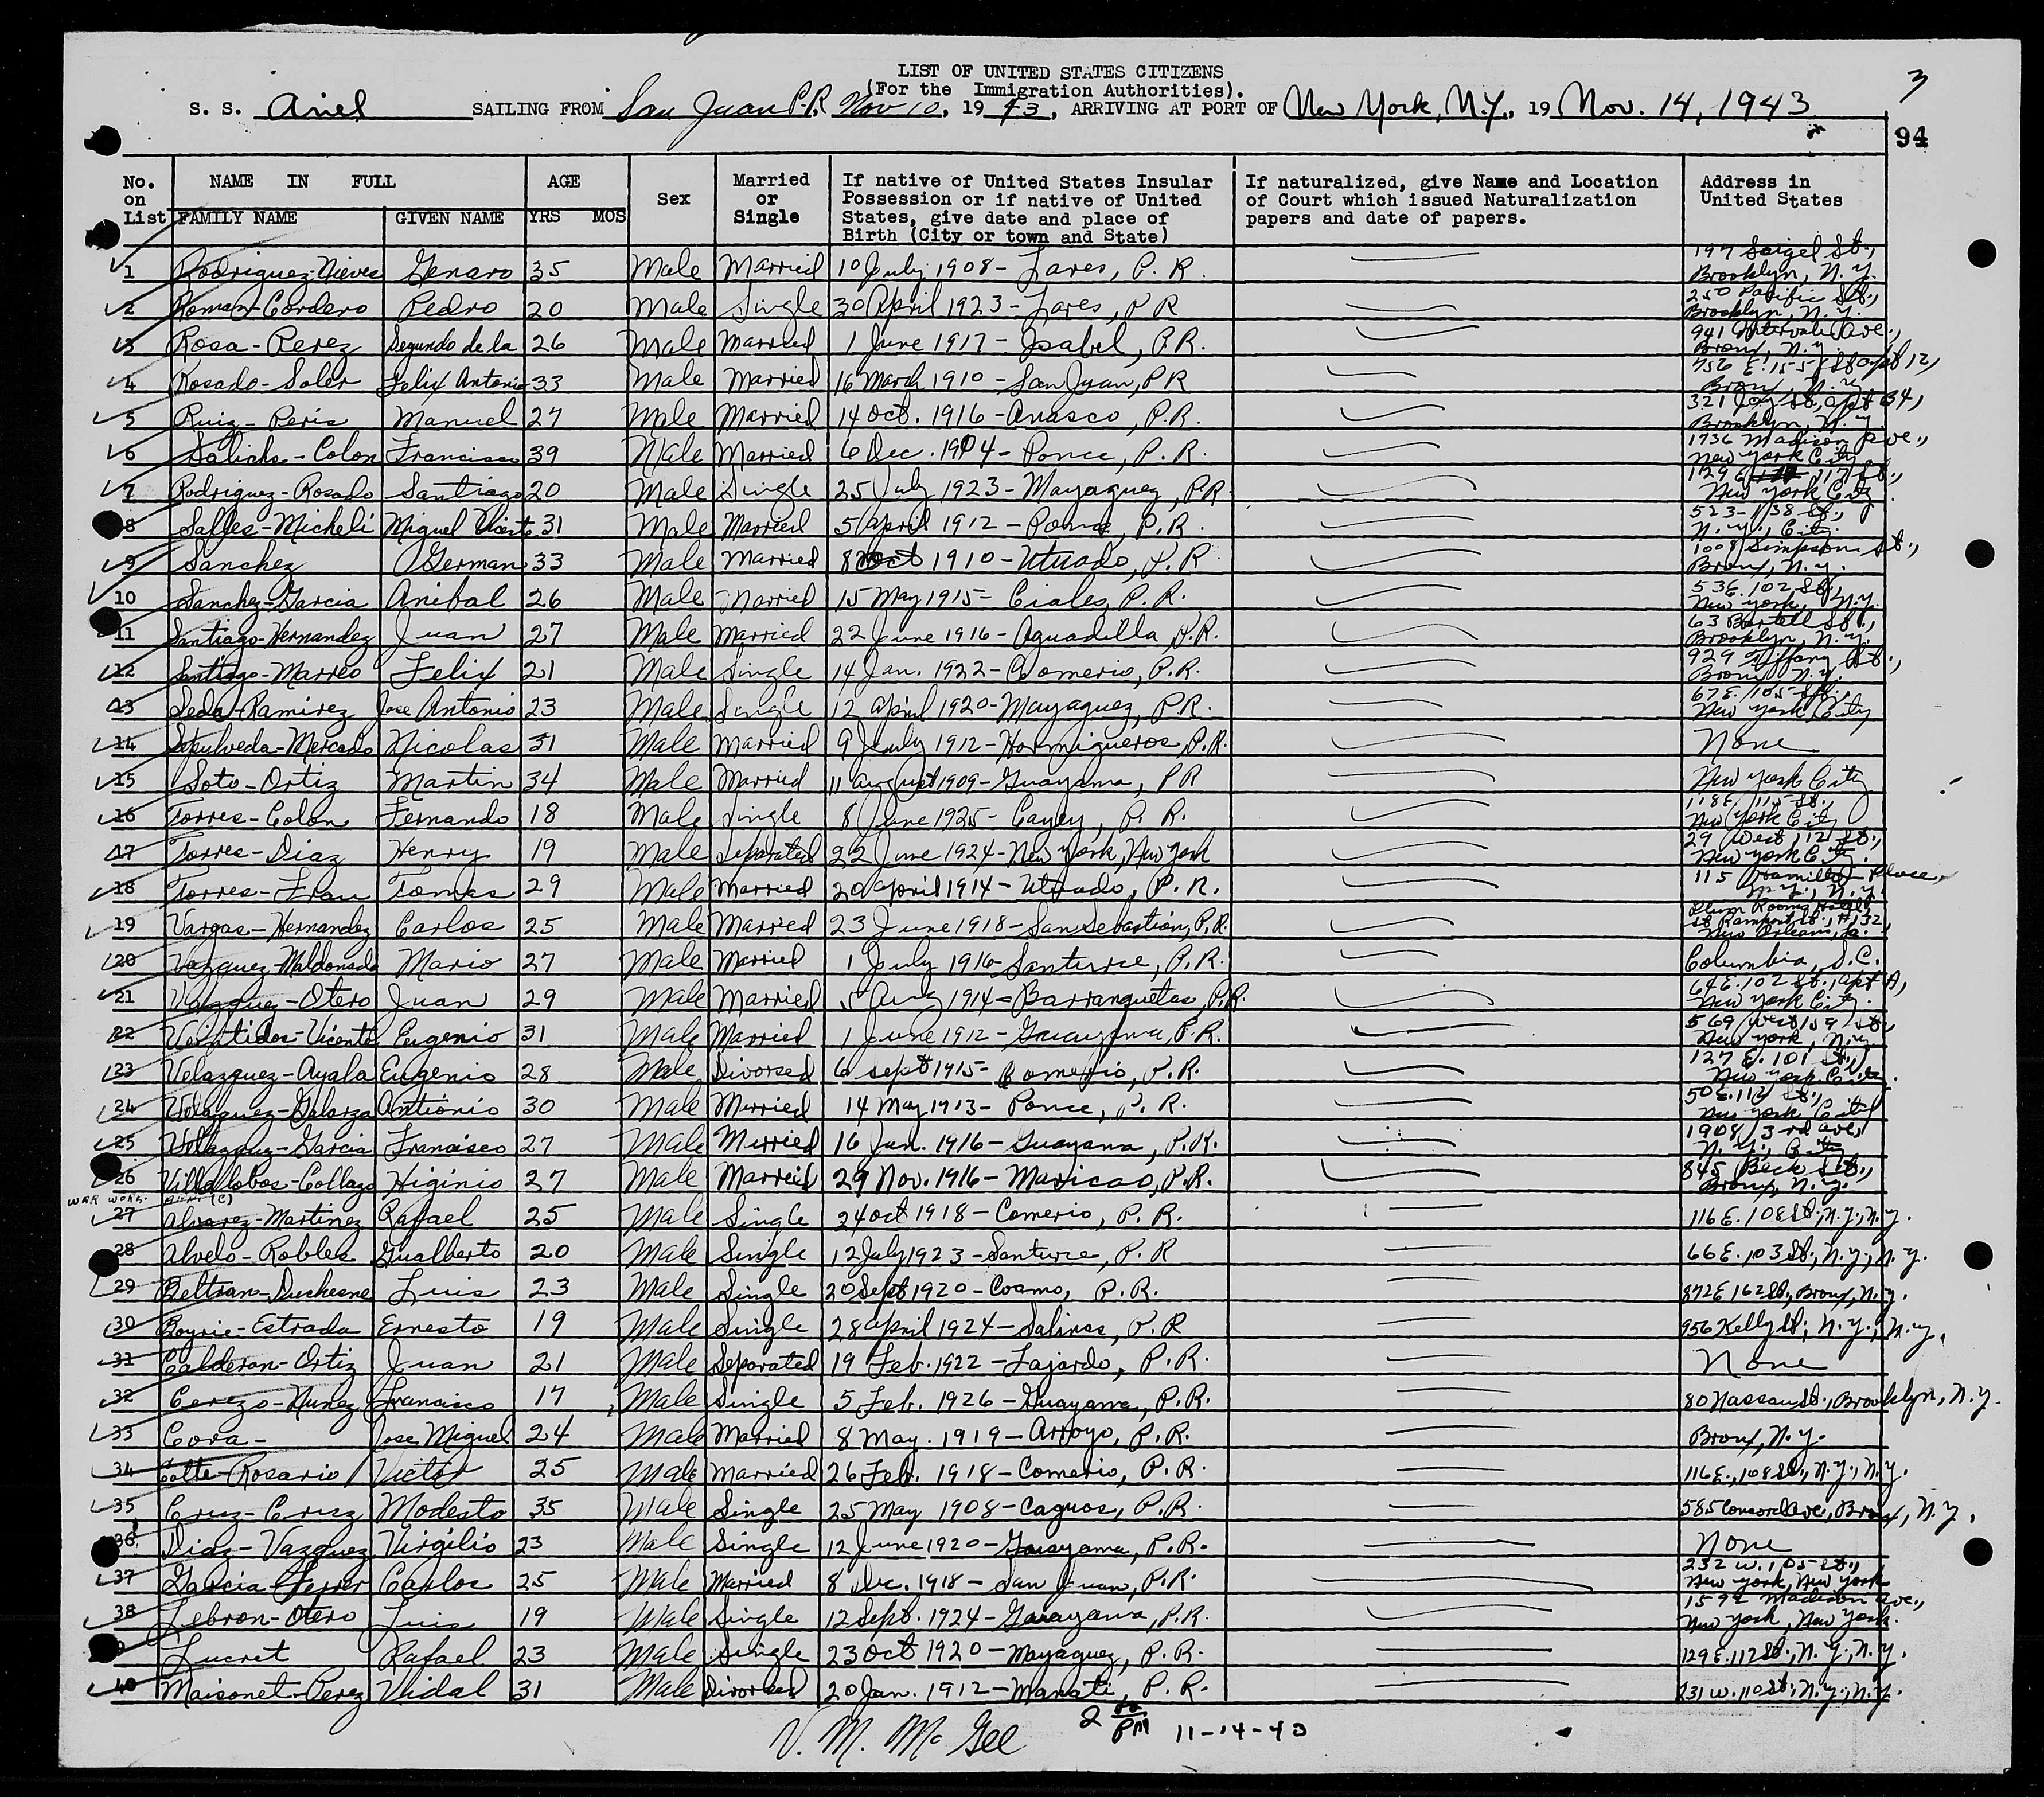 3
LIST OF UNITED STATES CITIZENS
(For the Immigration Authorities).
S. S. Ariel SAILING FROM San Juan P.R. Nov 10, 1943, ARRIVING AT PORT OF New York, N.Y., 19 Nov. 14, 1943
94
No. on List NAME IN FULL FAMILY NAME GIVEN NAME AGE YRS MOS Sex Married or Single If native of United States Insular Possession or if native of United States, give date and place of Birth (City or town and State) If naturalized, give Name and Location of Court which issued Naturalization papers and date of papers. Address in United States
1 Rodriguez-Nieves Genaro 35 Male Married 10 July 1908 - Lares, P. R. 197 Seigel St., Brooklyn, N. Y.
2 Roman-Cordero Pedro 20 Male Single 30 April 1923 - Lares, P R 250 Pacific St., Brooklyn, N. Y.
3 Rosa-Perez Segundo de la 26 Male Married 1 June 1917 - Isabel, P.R. 941 Intervale Ave., Bronx, N. Y.
4 Rosado-Soler Felix Antonio 33 Male Married 16 March 1910 - San Juan, P R 756 E. 155 St apt 12, Bronx N. Y.
5 Ruiz-Peris Manuel 27 Male Married 14 Oct. 1916 - Anasco, P.R. 321 St, apt B4, Brooklyn, N. Y.
6 Salichs-Colon Francisco 39 Male Married 6 Dec. 1904 - Ponce, P. R. 1736 Madison Ave., New York City
7 Rodriguez-Rosado Santiago 20 Male Single 25 July 1923 - Mayaguez, P.R. 129 E 117 St., New York City
8 Salles-Micheli Miguel Vicente 31 Male Married 5 April 1912 - Ponce, P. R. 523-138 St., N. Y., City.
9 Sanchez German 33 Male Married 8 Oct 1910 - Utuado, P. R 1008 Simpson St., Bronx, N. Y.
10 Sanchez-Garcia Anibal 26 Male Married 15 May 1915 - Ciales, P. R. 53 E. 102 St., New York, N. Y.
11 Santiago-Hernandez Juan 27 Male Married 22 June 1916 - Aguadilla, P.R. 63 Bartell St., Brooklyn, N. Y.
12 Santiago-Marreo Felix 21 Male Single 14 Jan. 1922 - Comerio, P.R. 929 Tiffany St., Bronx N. Y.
13 Seda-Ramirez Jose Antonio 23 Male Single 12 April 1920 - Mayaguez, P.R. 67 E. 105 St., New York City
14 Sepulveda-Mercado Nicolas 31 Male Married 9 July 1912 - Hormigueros, P.R. None
15 Soto-Ortiz Martin 34 Male Married 11 August 1909 - Guayama, P R New York City
16 Torres-Colon Fernando 18 Male Single 8 June 1925 - Cayey, P. R. 118 E. 115 St., New York City
17 Torres-Diaz Henry 19 Male Separated 22 June 1924 - New York, New York 29 West 112 St., New York City.
18 Torres-Frau Tomas 29 Male Married 20 April 1914 - Utuado, P. R. 115 Hamilton Place, N. Y., N. Y.
19 Vargas-Hernandez Carlos 25 Male Married 23 June 1918 - San Sebastian, P.R. St. Rampart St., #132, New Orleans, La.
20 Vazquez-Maldonado Mario 27 Male Married 1 July 1916 - Santurce, P.R. Columbia, S.C.
21 Vazquez-Otero Juan 29 Male Married 5 Aug 1914 - Barranquetas, P.R. 64 E. 102 St., apt A, New York City.
22 Veintidos-Vicente Eugenio 31 Male Married 1 June 1912 - Guayama, P.R. 569 West 159 St., New York, N.Y.
23 Velazquez-Ayala Eugenio 28 Male Divorsed 6 Sept 1915 - Comerio, P. R. 127 E. 101 St., New York City.
24 Velazquez-Galarza Antionio 30 Male Married 14 May 1913 - Ponce, P. R. 50 E. 112 St., New York City
25 Velazquez-Garcia Francisco 27 Male Married 16 Jan. 1916 - Guayama, P.R. 1908 3rd ave, N. Y., City
26 Villalobos-Collazo Higinio 27 Male Married 29 Nov. 1916 - Maricao, P.R. 845 Beck St., Bronx, N. Y.
WAR WORK.
27 Alvarez-Martinez Rafael 25 Male Single 24 Oct 1918 - Comerio, P. R. 116 E. 108 St., N.Y., N.Y.
28 Alvelo-Robles Gualberto 20 Male Single 12 July 1923 - Santurce, P. R 66 E. 103 St., N.Y., N.Y.
29 Beltran-Duchesne Luis 23 Male Single 20 Sept 1920 - Coamo, P. R. 872 E 162 St., Bronx, N.Y.
30 Boyrie-Estrada Ernesto 19 Male Single 28 April 1924 - Salinas, P. R 956 Kelly St., N.Y., N.Y.
31 Calderon-Ortiz Juan 21 Male Separated 19 Feb. 1922 - Fajardo, P. R. None
32 Cerezo-Nunez Francisco 17 Male Single 5 Feb. 1926 - Guayama, P.R. 80 Nassau St., Brooklyn, N.Y.
33 Cora- Jose Miguel 24 Male Married 8 May. 1919 - Arroyo, P. R. Bronx, N.Y.
34 Cotte-Rosario Victor 25 Male Married 26 Feb. 1918 - Comerio, P. R. 116 E., 108 St., N.Y., N.Y.
35 Cruz-Cruz Modesto 35 Male Single 25 May 1908 - Caguas, P. R. 585 Concord Ave., Bronx, N.Y.
36 Diaz-Vazquez Virgilio 23 Male Single 12 June 1920 - Guayama, P.R. None
37 Garcia-Ferrer Carlos 25 Male Married 8 Dec. 1918 - San Juan, P.R. 232 W. 105 St., New York, New York
38 Lebron-Otero Luis 19 Male Single 12 Sept. 1924 - Guayama, P.R. 1592 Madison Ave., New York, New York.
39 Lucret Rafael 23 Male Single 23 Oct 1920 - Mayaguez, P. R. 129 E. 117 St., N. Y., N. Y.
40 Maisonet-Perez Vidal 31 Male Divorsed 20 Jan. 1912 - Manati, P. R. 231 W. 110 St., N.Y., N.Y.
V. M. McGee 2 00 PM 11-14-43